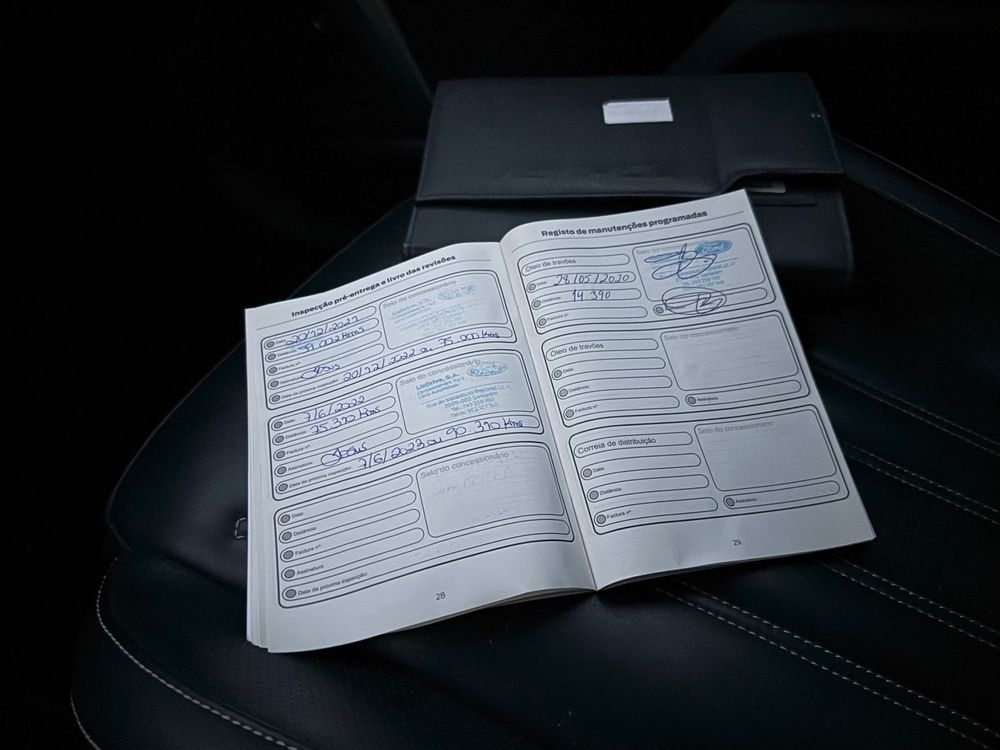 Inspecção pré-entrega e livro das revisões
Data: 20/12/2021
Distância:
Factura nº:
Assinatura:
Data da próxima inspecção: 20/12/2022 ou 75.000 Kms
Selo do concessionário
Data: 7/6/2022
Distância: 75.370 Kms
Factura nº:
Assinatura:
Data da próxima inspecção: 7/6/2023 ou 90 370 Kms
Selo do concessionário
LizDrive, S.A.
Data:
Distância:
Factura nº
Assinatura:
Data da próxima inspecção:
Selo do concessionário
28
Registo de manutenções programadas
Óleo de travões
Data: 28/05/2020
Distância: 14 390
Factura nº
Selo do
Ford
Óleo de travões
Data
Distância:
Factura nº
Selo do concessionário
Assinatura
Correia de distribuição
Data
Distância:
Factura nº
Selo do concessionário
Assinatura
29